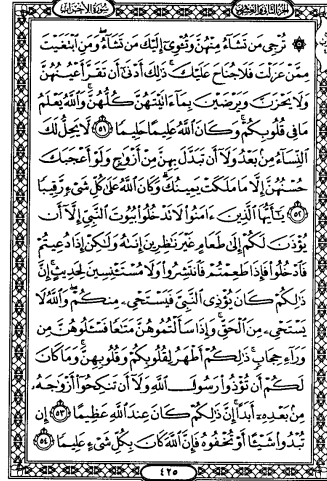 الجزء الثاني والعشرون
سورة الأحزاب
۞ تُرْجِى مَن تَشَآءُ مِنْهُنَّ وَتُـْٔوِىٓ إِلَيْكَ مَن تَشَآءُ ۖ وَمَنِ ٱبْتَغَيْتَ
مِمَّنْ عَزَلْتَ فَلَا جُنَاحَ عَلَيْكَ ۚ ذَٰلِكَ أَدْنَىٰٓ أَن تَقَرَّ أَعْيُنُهُنَّ
وَلَا يَحْزَنَّ وَيَرْضَيْنَ بِمَآ ءَاتَيْتَهُنَّ كُلُّهُنَّ ۚ وَٱللَّهُ يَعْلَمُ
مَا فِى قُلُوبِكُمْ ۚ وَكَانَ ٱللَّهُ عَلِيمًا حَلِيمًا ﴿٥١﴾ لَّا يَحِلُّ لَكَ
ٱلنِّسَآءُ مِنۢ بَعْدُ وَلَآ أَن تَبَدَّلَ بِهِنَّ مِنْ أَزْوَٰجٍ وَلَوْ أَعْجَبَكَ
حُسْنُهُنَّ إِلَّا مَا مَلَكَتْ يَمِينُكَ ۗ وَكَانَ ٱللَّهُ عَلَىٰ كُلِّ شَىْءٍ رَّقِيبًا
﴿٥٢﴾ يَٰٓأَيُّهَا ٱلَّذِينَ ءَامَنُوا۟ لَا تَدْخُلُوا۟ بُيُوتَ ٱلنَّبِىِّ إِلَّآ أَن
يُؤْذَنَ لَكُمْ إِلَىٰ طَعَامٍ غَيْرَ نَٰظِرِينَ إِنَىٰهُ وَلَٰكِنْ إِذَا دُعِيتُمْ
فَٱدْخُلُوا۟ فَإِذَا طَعِمْتُمْ فَٱنتَشِرُوا۟ وَلَا مُسْتَـْٔنِسِينَ لِحَدِيثٍ ۚ إِنَّ
ذَٰلِكُمْ كَانَ يُؤْذِى ٱلنَّبِىَّ فَيَسْتَحْىِۦ مِنكُمْ ۖ وَٱللَّهُ لَا
يَسْتَحْىِۦ مِنَ ٱلْحَقِّ ۚ وَإِذَا سَأَلْتُمُوهُنَّ مَتَٰعًا فَسْـَٔلُوهُنَّ مِن
وَرَآءِ حِجَابٍ ۚ ذَٰلِكُمْ أَطْهَرُ لِقُلُوبِكُمْ وَقُلُوبِهِنَّ ۚ وَمَا كَانَ
لَكُمْ أَن تُؤْذُوا۟ رَسُولَ ٱللَّهِ وَلَآ أَن تَنكِحُوٓا۟ أَزْوَٰجَهُۥ
مِنۢ بَعْدِهِۦٓ أَبَدًا ۚ إِنَّ ذَٰلِكُمْ كَانَ عِندَ ٱللَّهِ عَظِيمًا ﴿٥٣﴾ إِن
تُبْدُوا۟ شَيْـًٔا أَوْ تُخْفُوهُ فَإِنَّ ٱللَّهَ كَانَ بِكُلِّ شَىْءٍ عَلِيمًا ﴿٥٤﴾
٤٢٥